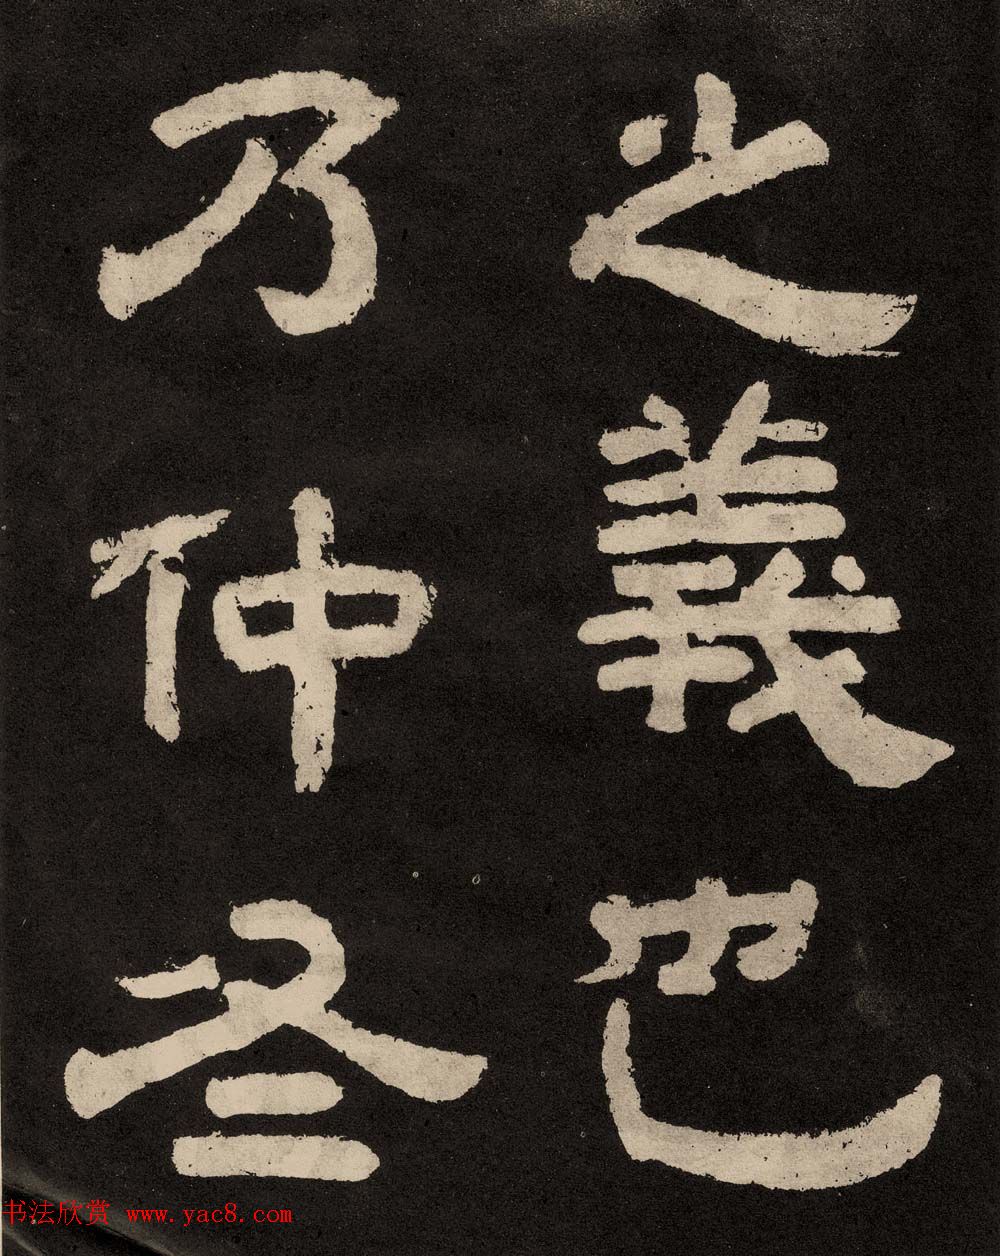 之義也
乃仲冬
书法欣赏 www.yac8.com